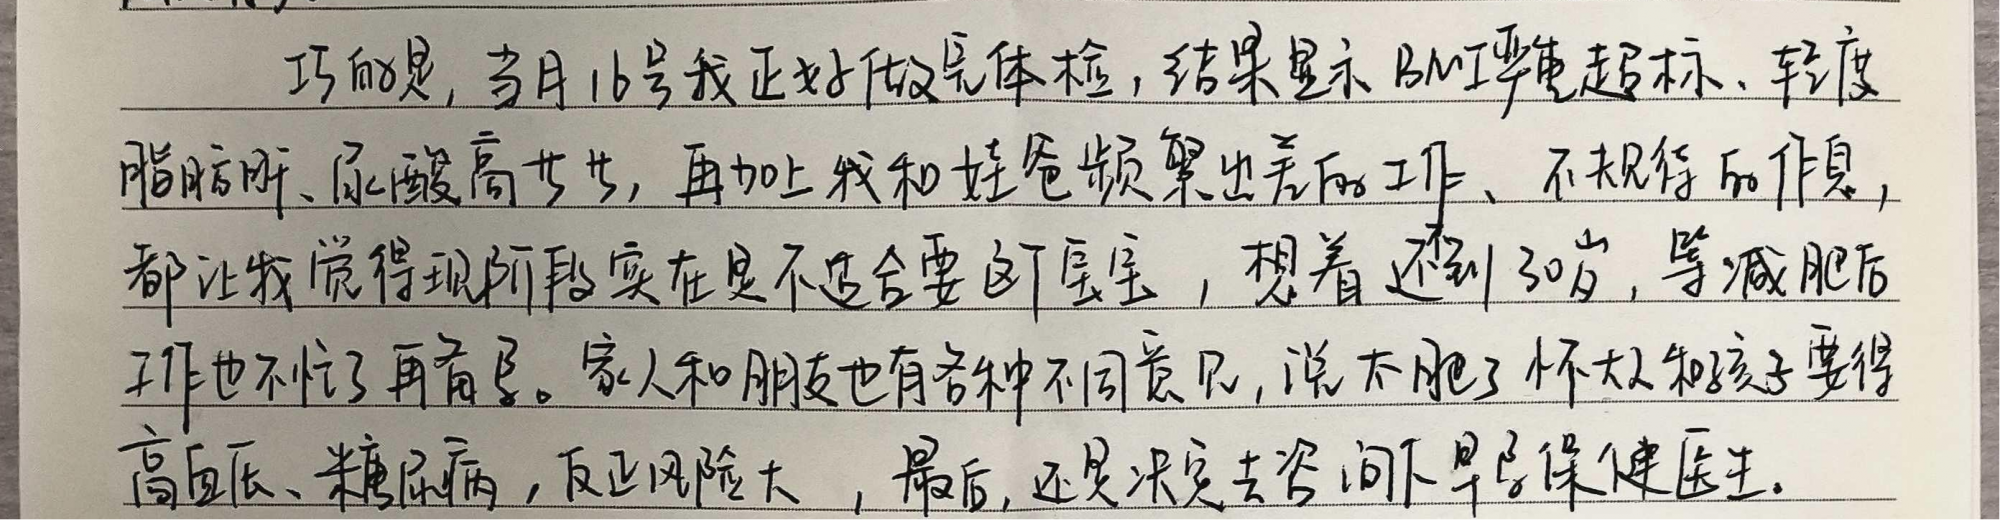 巧的是，当月16号我正好做完体检，结果显示BMI严重超标、轻度
脂肪肝、尿酸高廿廿，再加上我和娃爸频繁出差的工作、不规律的作息，
都让我觉得现阶段实在是不适合要这个宝宝，想着还不到30岁，等减肥后
工作也不忙了再备孕。家人和朋友也有各种不同意见，说太肥了怀大人和孩子要得
高血压、糖尿病，反正风险大，最后，还是决定去咨询下早孕保健医生。